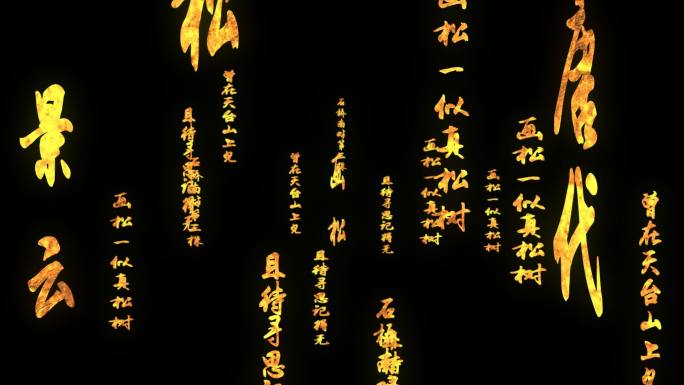 唐代
曾在天台山上见
画松一似真松树
画松一似真松树
画松一似真松树
画松一似真松树
且待寻思记得无
石桥南
画松
石桥南
且待寻思记
且待寻思记得无
曾在天台山上见
曾在天台山上见
松
且待寻思
画松一似真松树
景云